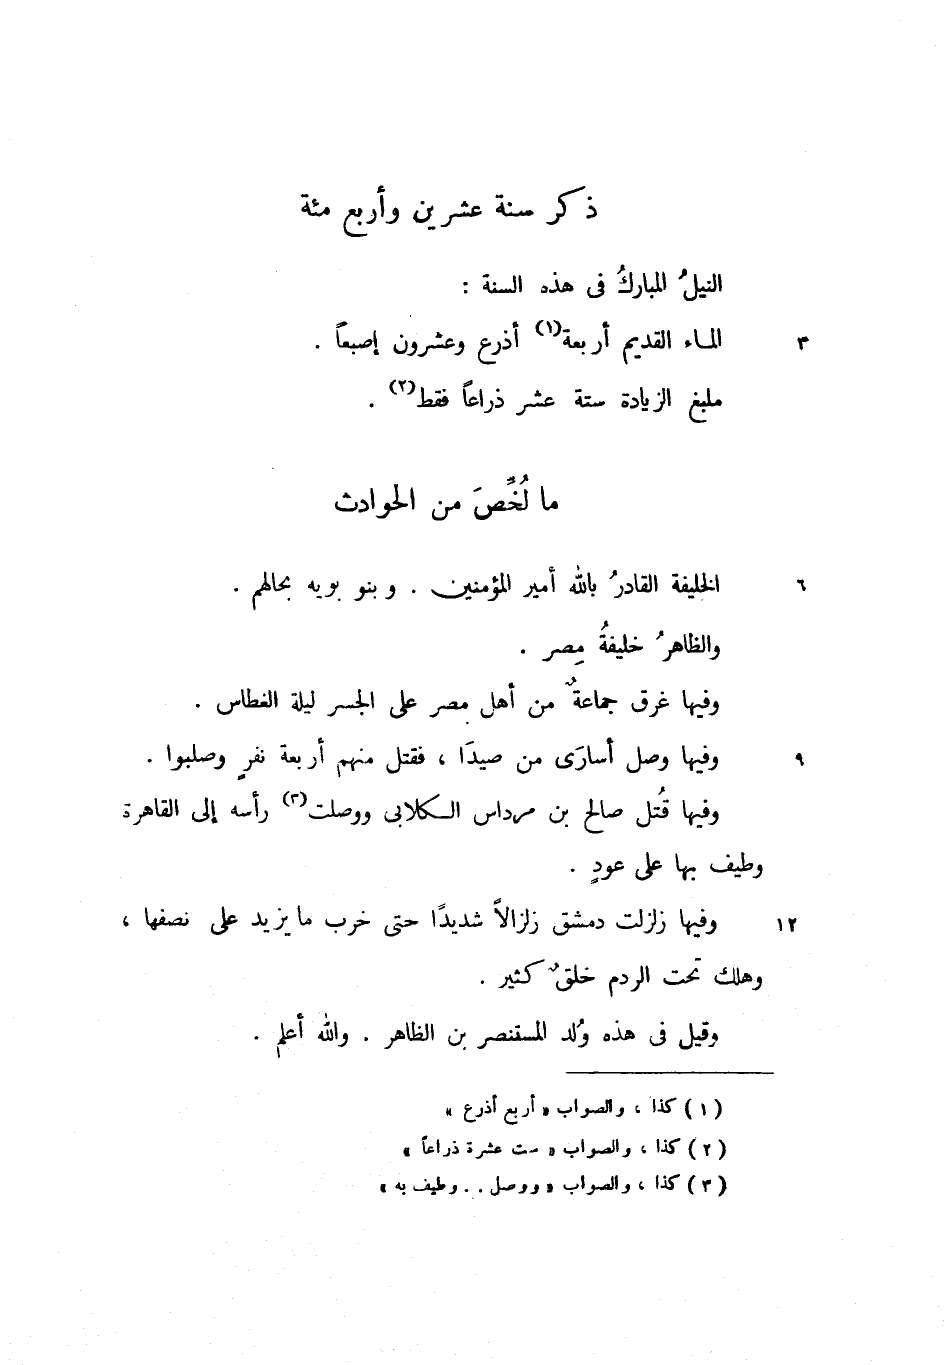 ذكر سنة عشرين وأربع مئة
النيلُ المباركُ فى هذه السنة :
٣ الماء القديم أربعة(١) أذرع وعشرون إصبعاً .
ملبغ الزيادة ستة عشر ذراعاً فقط(٢) .
ما لُخِّصَ من الحوادث
٦ الخليفة القادرُ بالله أمير المؤمنين . وبنو بويه بحالهم .
والظاهرُ خليفةُ مِصر .
وفيها غرق جماعةٌ من أهل مصر على الجسر ليلة الغطاس .
٩ وفيها وصل أسارَى من صيدَا ، فقتل منهم أربعة نفرٍ وصلبوا .
وفيها قُتل صالح بن مرداس الكلابى ووصلت(٣) رأسه إلى القاهرة
وطيف بها على عودٍ .
١٢ وفيها زلزلت دمشق زلزالاً شديدًا حتى خرب ما يزيد على نصفها ،
وهلك تحت الردم خلقٌ كثير .
وقيل فى هذه وُلد المستنصر بن الظاهر . والله أعلم .
(١) كذا ، والصواب « أربع أذرع »
(٢) كذا ، والصواب « ست عشرة ذراعاً »
(٣) كذا ، والصواب « ووصل . . وطيف به »